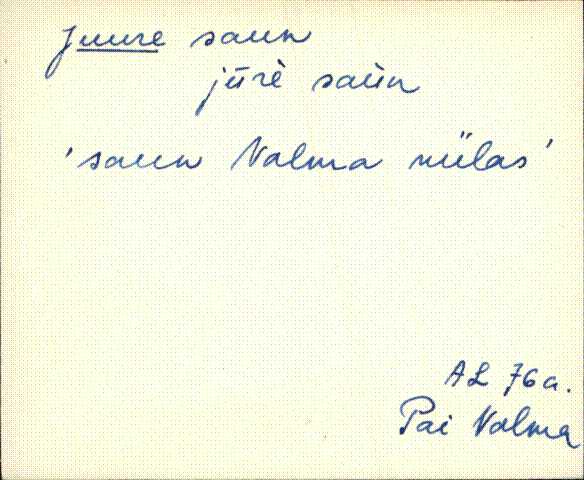 Juure saun
jūrè saùn
'saun Valma nülas'
AL 76a.
Pai Valma